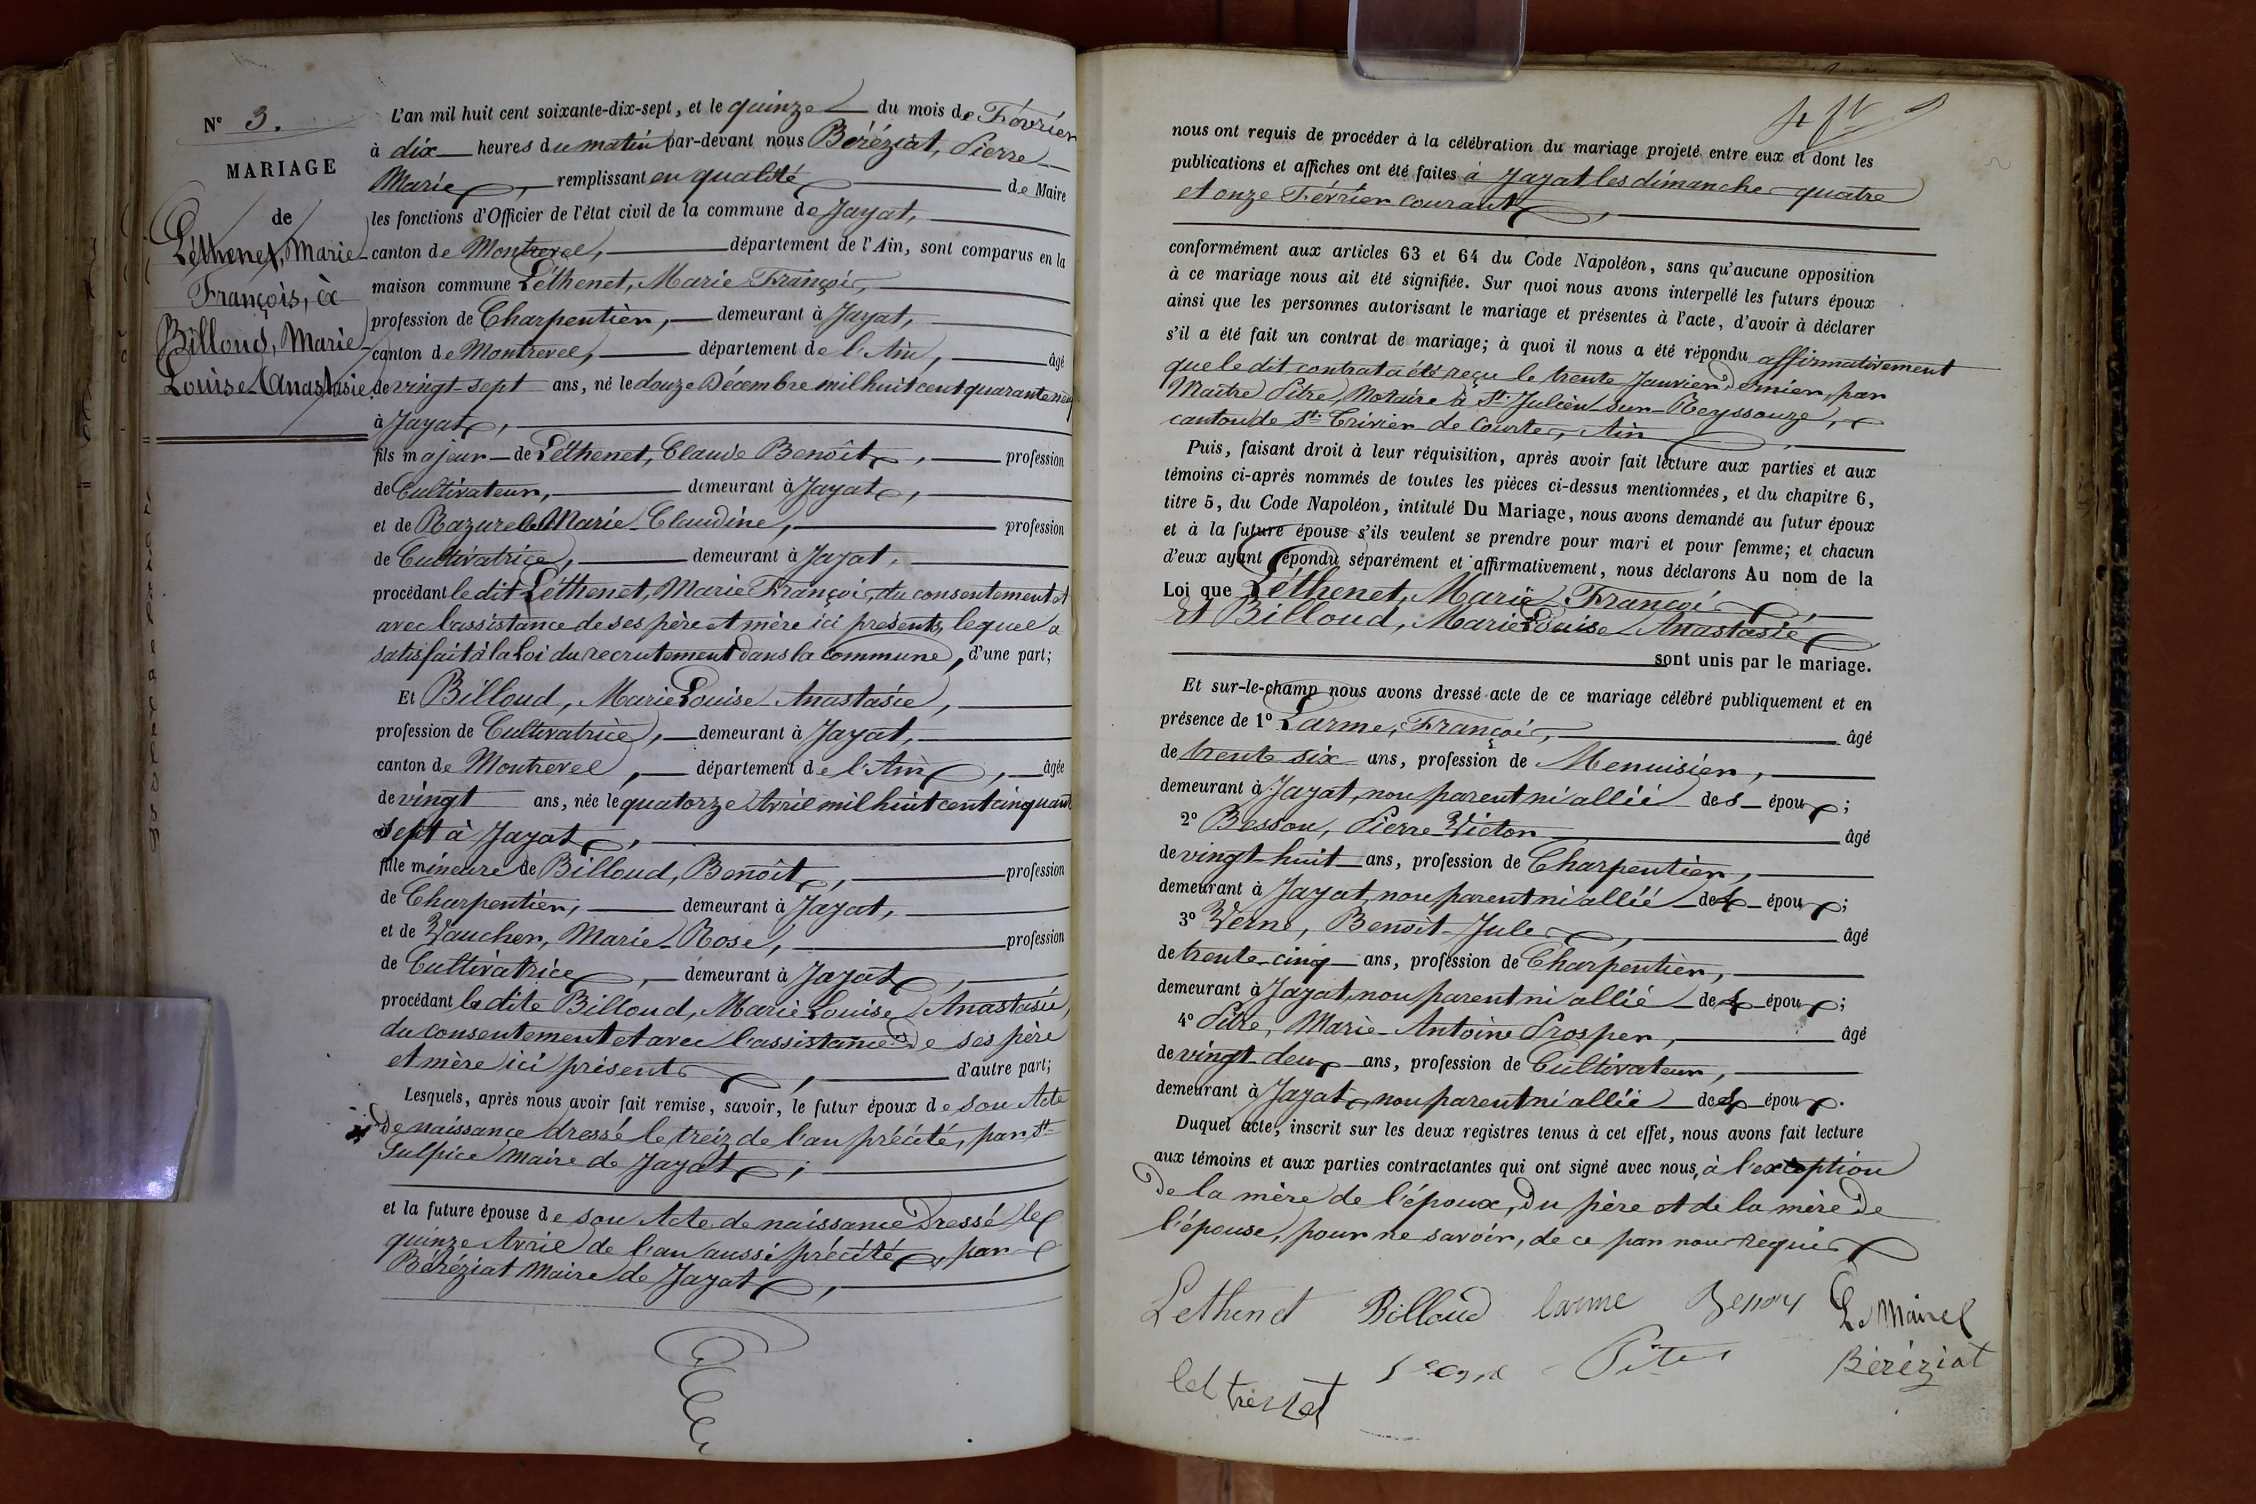 N° 3.
MARIAGE
de
Léthenet, Marie
François, à
Billoud, Marie
Louise Anastasie
L'an mil huit cent soixante-dix-sept, et le quinze du mois de Février
à dix heures du matin par-devant nous Béréziat, Pierre
Marie, remplissant en qualité de Maire
les fonctions d'Officier de l'état civil de la commune de Jayat,
canton de Montrevel, département de l'Ain, sont comparus en la
maison commune Léthenet, Marie Françoi,
profession de Charpentier, demeurant à Jayat,
canton de Montrevel, département de l'Ain, âgé
de vingt sept ans, né le douze Décembre mil huit cent quarante neuf
à Jayat,
fils majeur de Léthenet, Claude Benoît, profession
de Cultivateur, demeurant à Jayat,
et de Razurel Marie Claudine, profession
de Cultivatrice, demeurant à Jayat,
procédant le dit Léthenet, Marie Françoi, du consentement et
avec l'assistance de ses père et mère ici présents, lequel a
satisfait à la Loi du recrutement dans la commune, d'une part;
Et Billoud, Marie Louise Anastasie,
profession de Cultivatrice, demeurant à Jayat,
canton de Montrevel, département de l'Ain, âgée
de vingt ans, née le quatorze Avril mil huit cent cinquante
sept à Jayat,
fille mineure de Billoud, Benoît, profession
de Charpentier, demeurant à Jayat,
et de Vaucher, Marie Rose, profession
de Cultivatrice, demeurant à Jayat,
procédant la dite Billoud, Marie Louise Anastasie,
du consentement et avec l'assistance de ses père
et mère ici présents, d'autre part;
Lesquels, après nous avoir fait remise, savoir, le futur époux de son Acte
de naissance dressé le treiz de l'an précité, par St
Sulpice Maire de Jayat;
et la future épouse de son Acte de naissance dressé le
quinze Avril de l'an aussi précité, par
Béréziat Maire de Jayat,
nous ont requis de procéder à la célébration du mariage projeté entre eux et dont les
publications et affiches ont été faites à Jayat les dimanche quatre
et onze Février courant,
conformément aux articles 63 et 64 du Code Napoléon, sans qu'aucune opposition
à ce mariage nous ait été signifiée. Sur quoi nous avons interpellé les futurs époux
ainsi que les personnes autorisant le mariage et présentes à l'acte, d'avoir à déclarer
s'il a été fait un contrat de mariage; à quoi il nous a été répondu affirmativement
que le dit contrat a été reçu le trente Janvier dernier, par
Maître Pitre, Notaire à St. Julien-sur-Reyssouze,
canton de St. Trivier de Courte, Ain
Puis, faisant droit à leur réquisition, après avoir fait lecture aux parties et aux
témoins ci-après nommés de toutes les pièces ci-dessus mentionnées, et du chapitre 6,
titre 5, du Code Napoléon, intitulé Du Mariage, nous avons demandé au futur époux
et à la future épouse s'ils veulent se prendre pour mari et pour femme; et chacun
d'eux ayant répondu séparément et affirmativement, nous déclarons Au nom de la
Loi que Léthenet, Marie Françoi
Et Billoud, Marie Louise Anastasie
sont unis par le mariage.
Et sur-le-champ nous avons dressé acte de ce mariage célébré publiquement et en
présence de 1° Larme, Françoi, âgé
de trente six ans, profession de Menuisier,
demeurant à Jayat, non parent ni allié des époux;
2° Besson, Pierre Victor âgé
de vingt huit ans, profession de Charpentier,
demeurant à Jayat, non parent ni allié des époux;
3° Verne, Benoît Jule, âgé
de trente cinq ans, profession de Charpentier,
demeurant à Jayat, non parent ni allié des époux;
4° Pitre, Marie-Antoine Prosper, âgé
de vingt-deux ans, profession de Cultivateur,
demeurant à Jayat, non parent ni allié des époux.
Duquel acte, inscrit sur les deux registres tenus à cet effet, nous avons fait lecture
aux témoins et aux parties contractantes qui ont signé avec nous, à l'exception
de la mère de l'époux, du père et de la mère de
l'épouse, pour ne savoir, de ce par nou requis
Lethenet Billoud larme Besson Le Maire
Pitre Béréziat